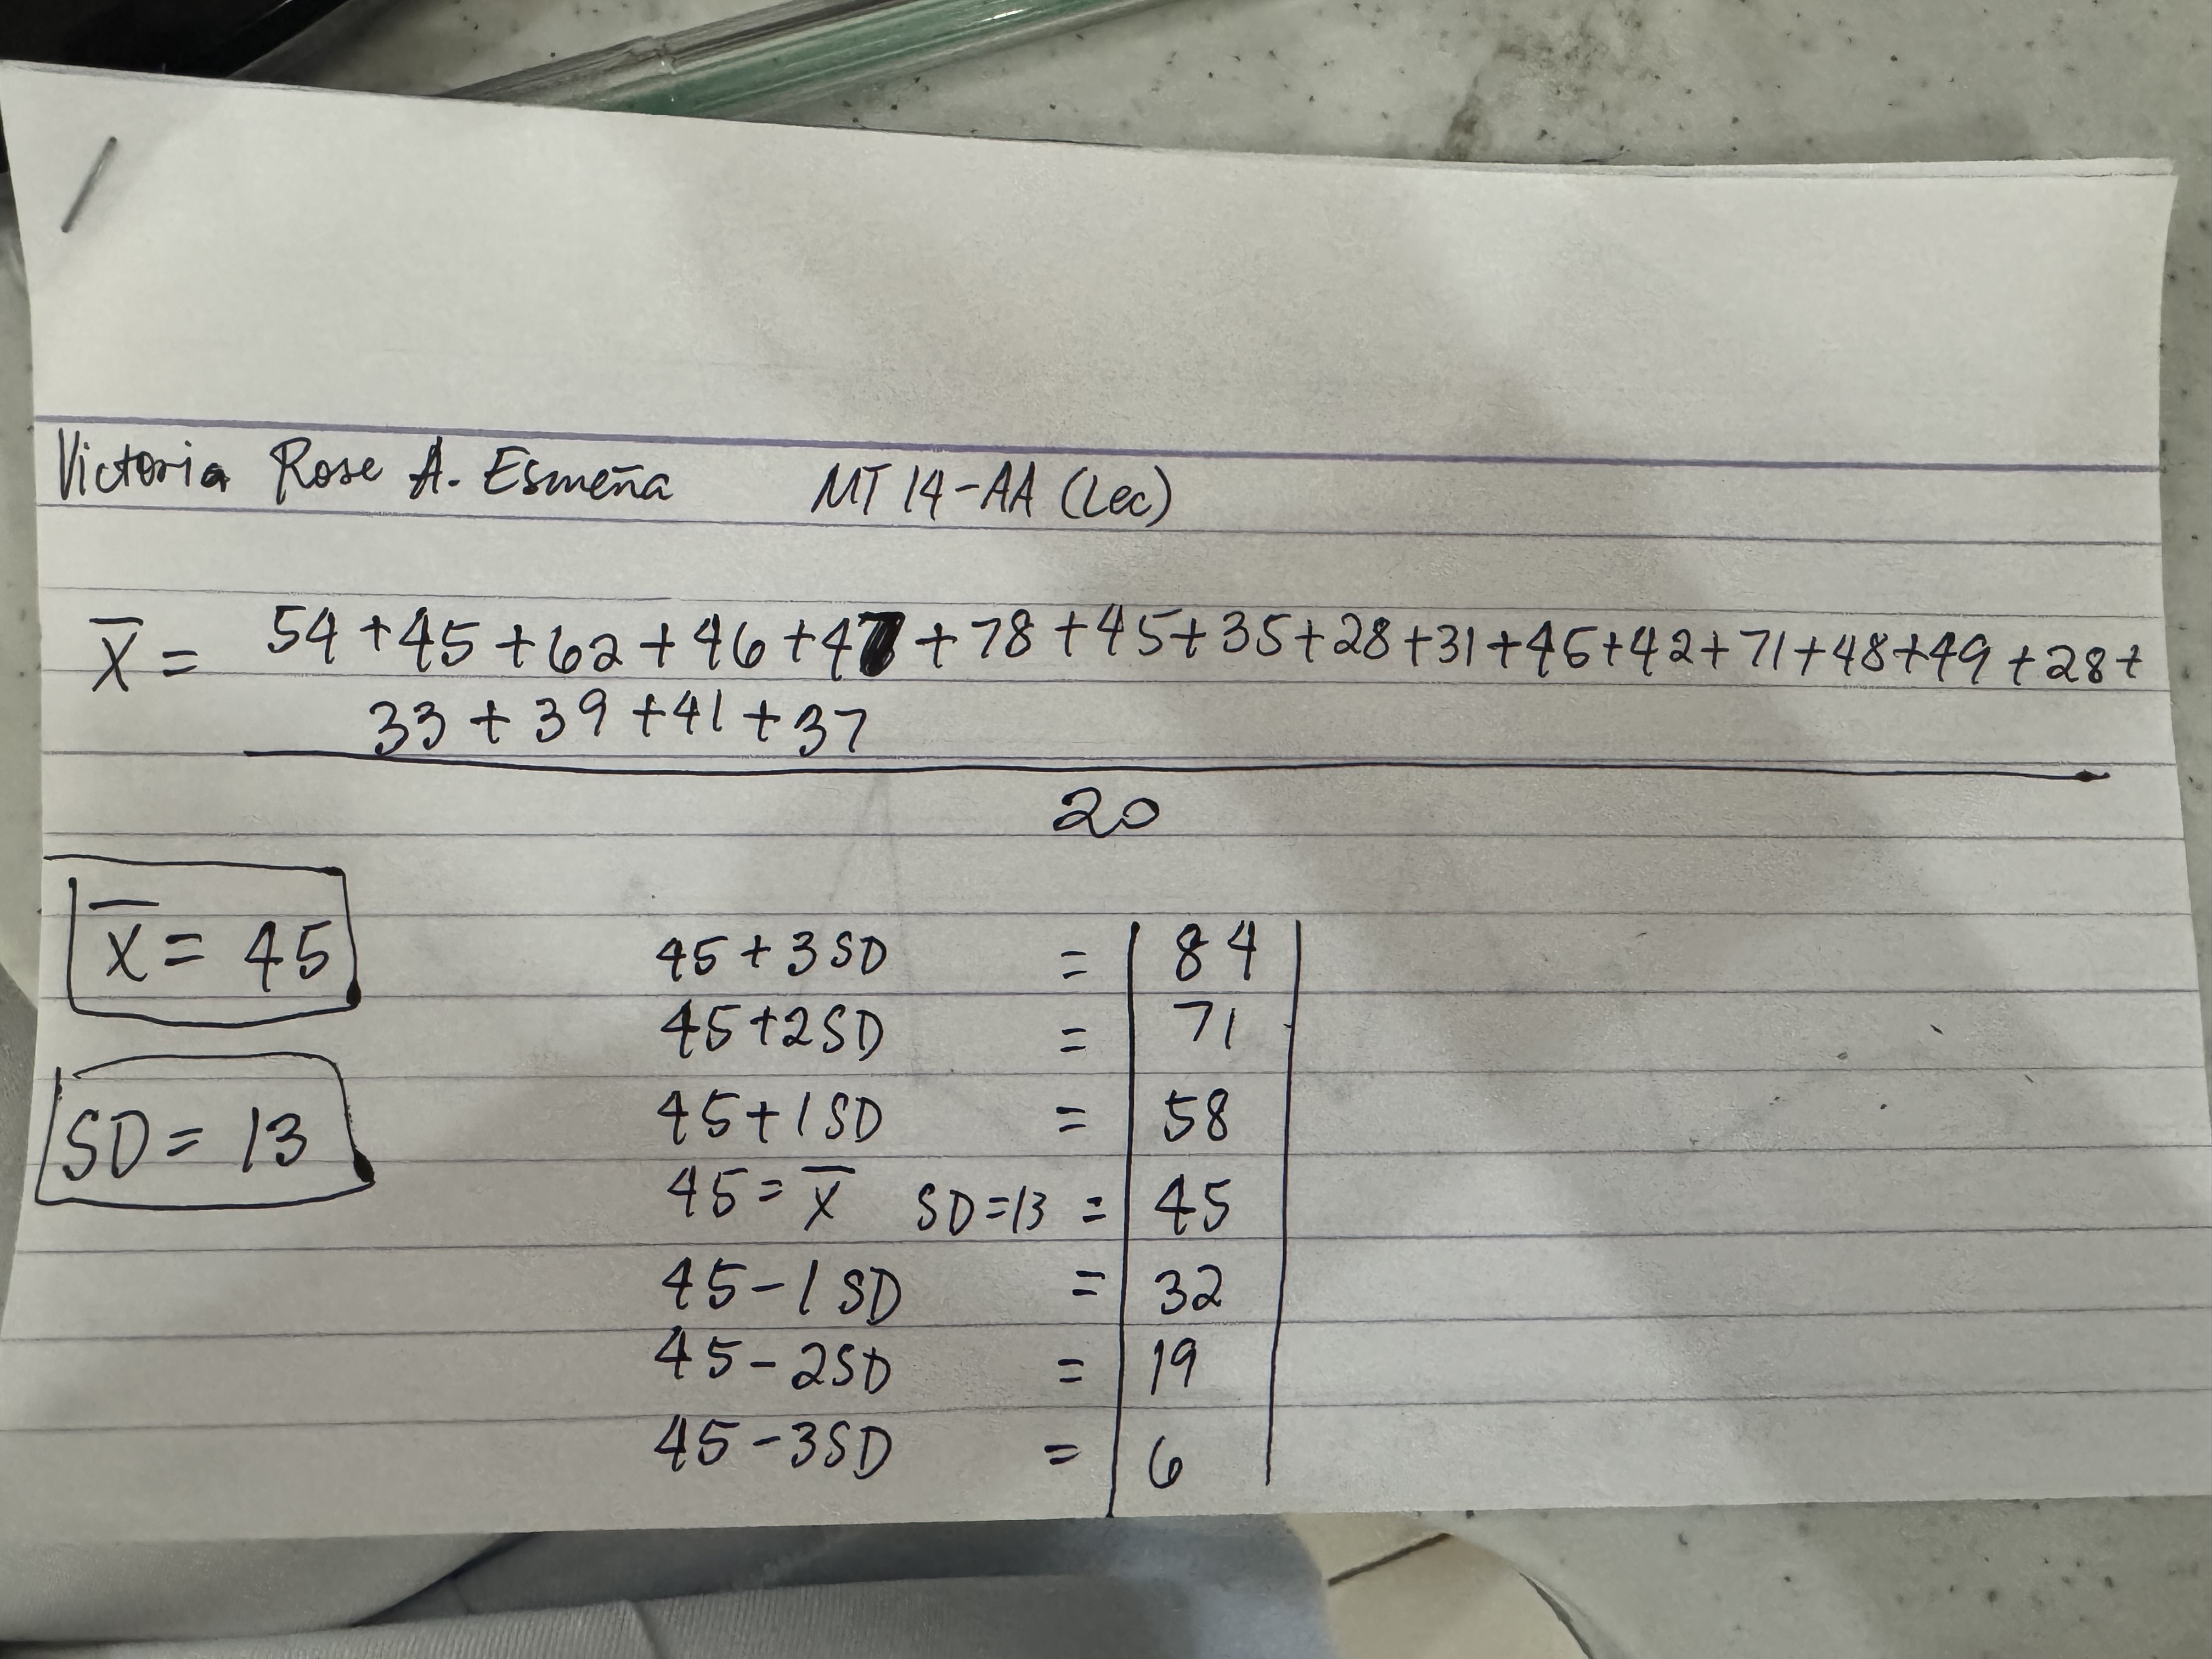 Victoria Rose A. Esmeña MT 14-AA (Lec)
X̄ = 54 + 45 + 62 + 46 + 47 + 78 + 45 + 35 + 28 + 31 + 45 + 42 + 71 + 48 + 49 + 28 +
33 + 39 + 41 + 37
20
X̄ = 45
SD = 13
45 + 3SD = 84
45 + 2SD = 71
45 + 1SD = 58
45 = X̄ SD = 13 = 45
45 - 1SD = 32
45 - 2SD = 19
45 - 3SD = 6